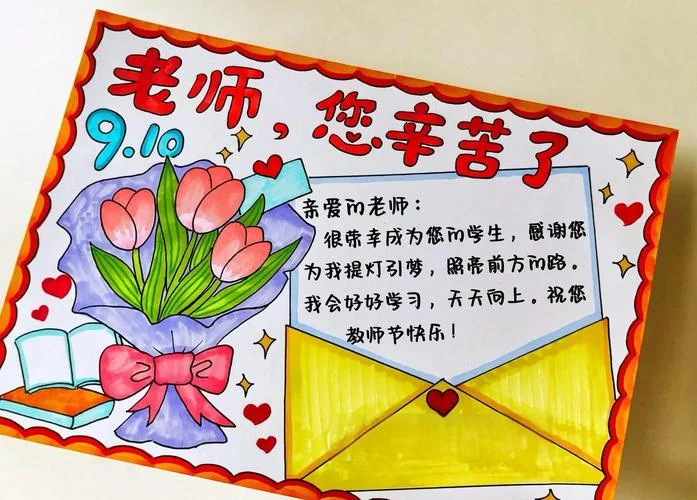 老师，您辛苦了
9.10
亲爱的老师：
很荣幸成为您的学生，感谢您
为我提灯引梦，照亮前方的路。
我会好好学习，天天向上。祝您
教师节快乐！